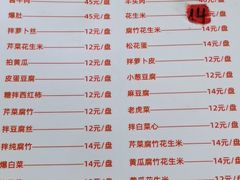 45元/盘
爆肚 45元/盘
拌萝卜丝 12元/盘
芹菜花生米 12元/盘
拍黄瓜 12元/盘
皮蛋豆腐 12元/盘
糖拌西红柿 12元/盘
芹菜腐竹 12元/盘
拌豆腐丝 12元/盘
拌纯腐竹 14元/盘
爆白菜 14元/盘
14元/盘
花生米
14
腐竹花生米
松花蛋
拌萝卜皮 12元/盘
小葱豆腐 12元/盘
麻豆腐 12元/盘
老虎菜 12元/盘
拌白菜心 12元/盘
芹菜腐竹花生米 14元/盘
黄瓜腐竹花生米 14元/盘